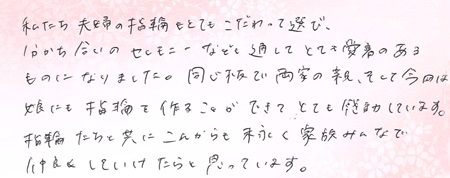 私たち夫婦の指輪もとてもこだわって選び、
分かち合いのセレモニーなども通してとても愛着のある
ものになりました。同じ板で両家の親、そして今回は
娘にも指輪を作ることができてとても感動しています。
指輪たちと共にこれからも末永く家族みんなで
仲良くしていけたらと思っています。